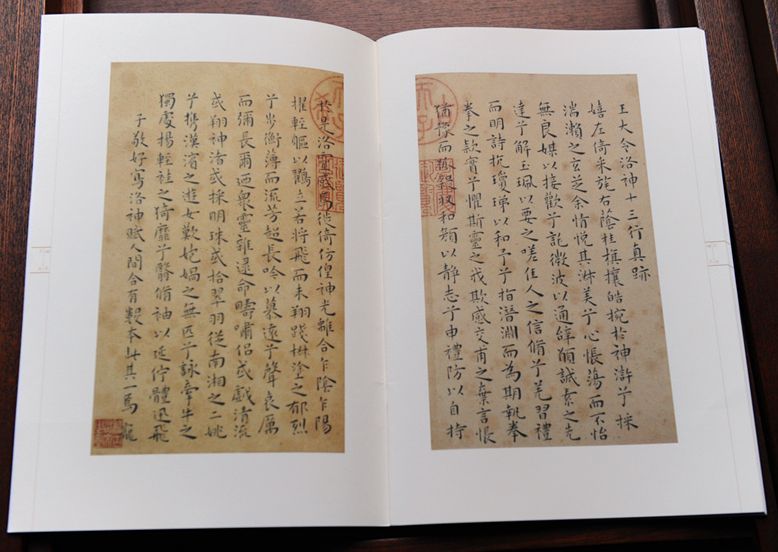 王大令洛神十三行真跡
嬉左倚采旄右蔭桂旗攘皓捥於神滸兮採
湍瀨之玄芝余情悅其淋美兮心悵蕩而不怡
無良媒以接歡兮託微波以通辭願誠素之先
達兮解玉珮以要之嗟佳人之信脩兮羌習禮
而明詩抗瓊珶以和予兮指潛淵而為期執拳
拳之款實兮懼斯靈之我欺感交甫之棄言悵
猶豫而狐疑收和顏以静志兮申禮防以自持
於是洛靈感焉徙倚仿偟神光離合乍陰乍陽
擢輕軀以鶴立若將飛而未翔踐椒塗之郁烈
兮步蘅薄而流芳超長吟以慕遠兮聲哀厲
而彌長爾迺眾靈雜遝命疇嘯侶或戲清流
或翔神渚或採明珠或拾翠羽從南湘之二姚
兮携漢濱之遊女歎媧之無匹兮詠牽牛之
獨處揚輕袿之猗靡兮翳脩袖以延佇體迅飛
子敬好寫洛神賦人間合有數本此其一焉